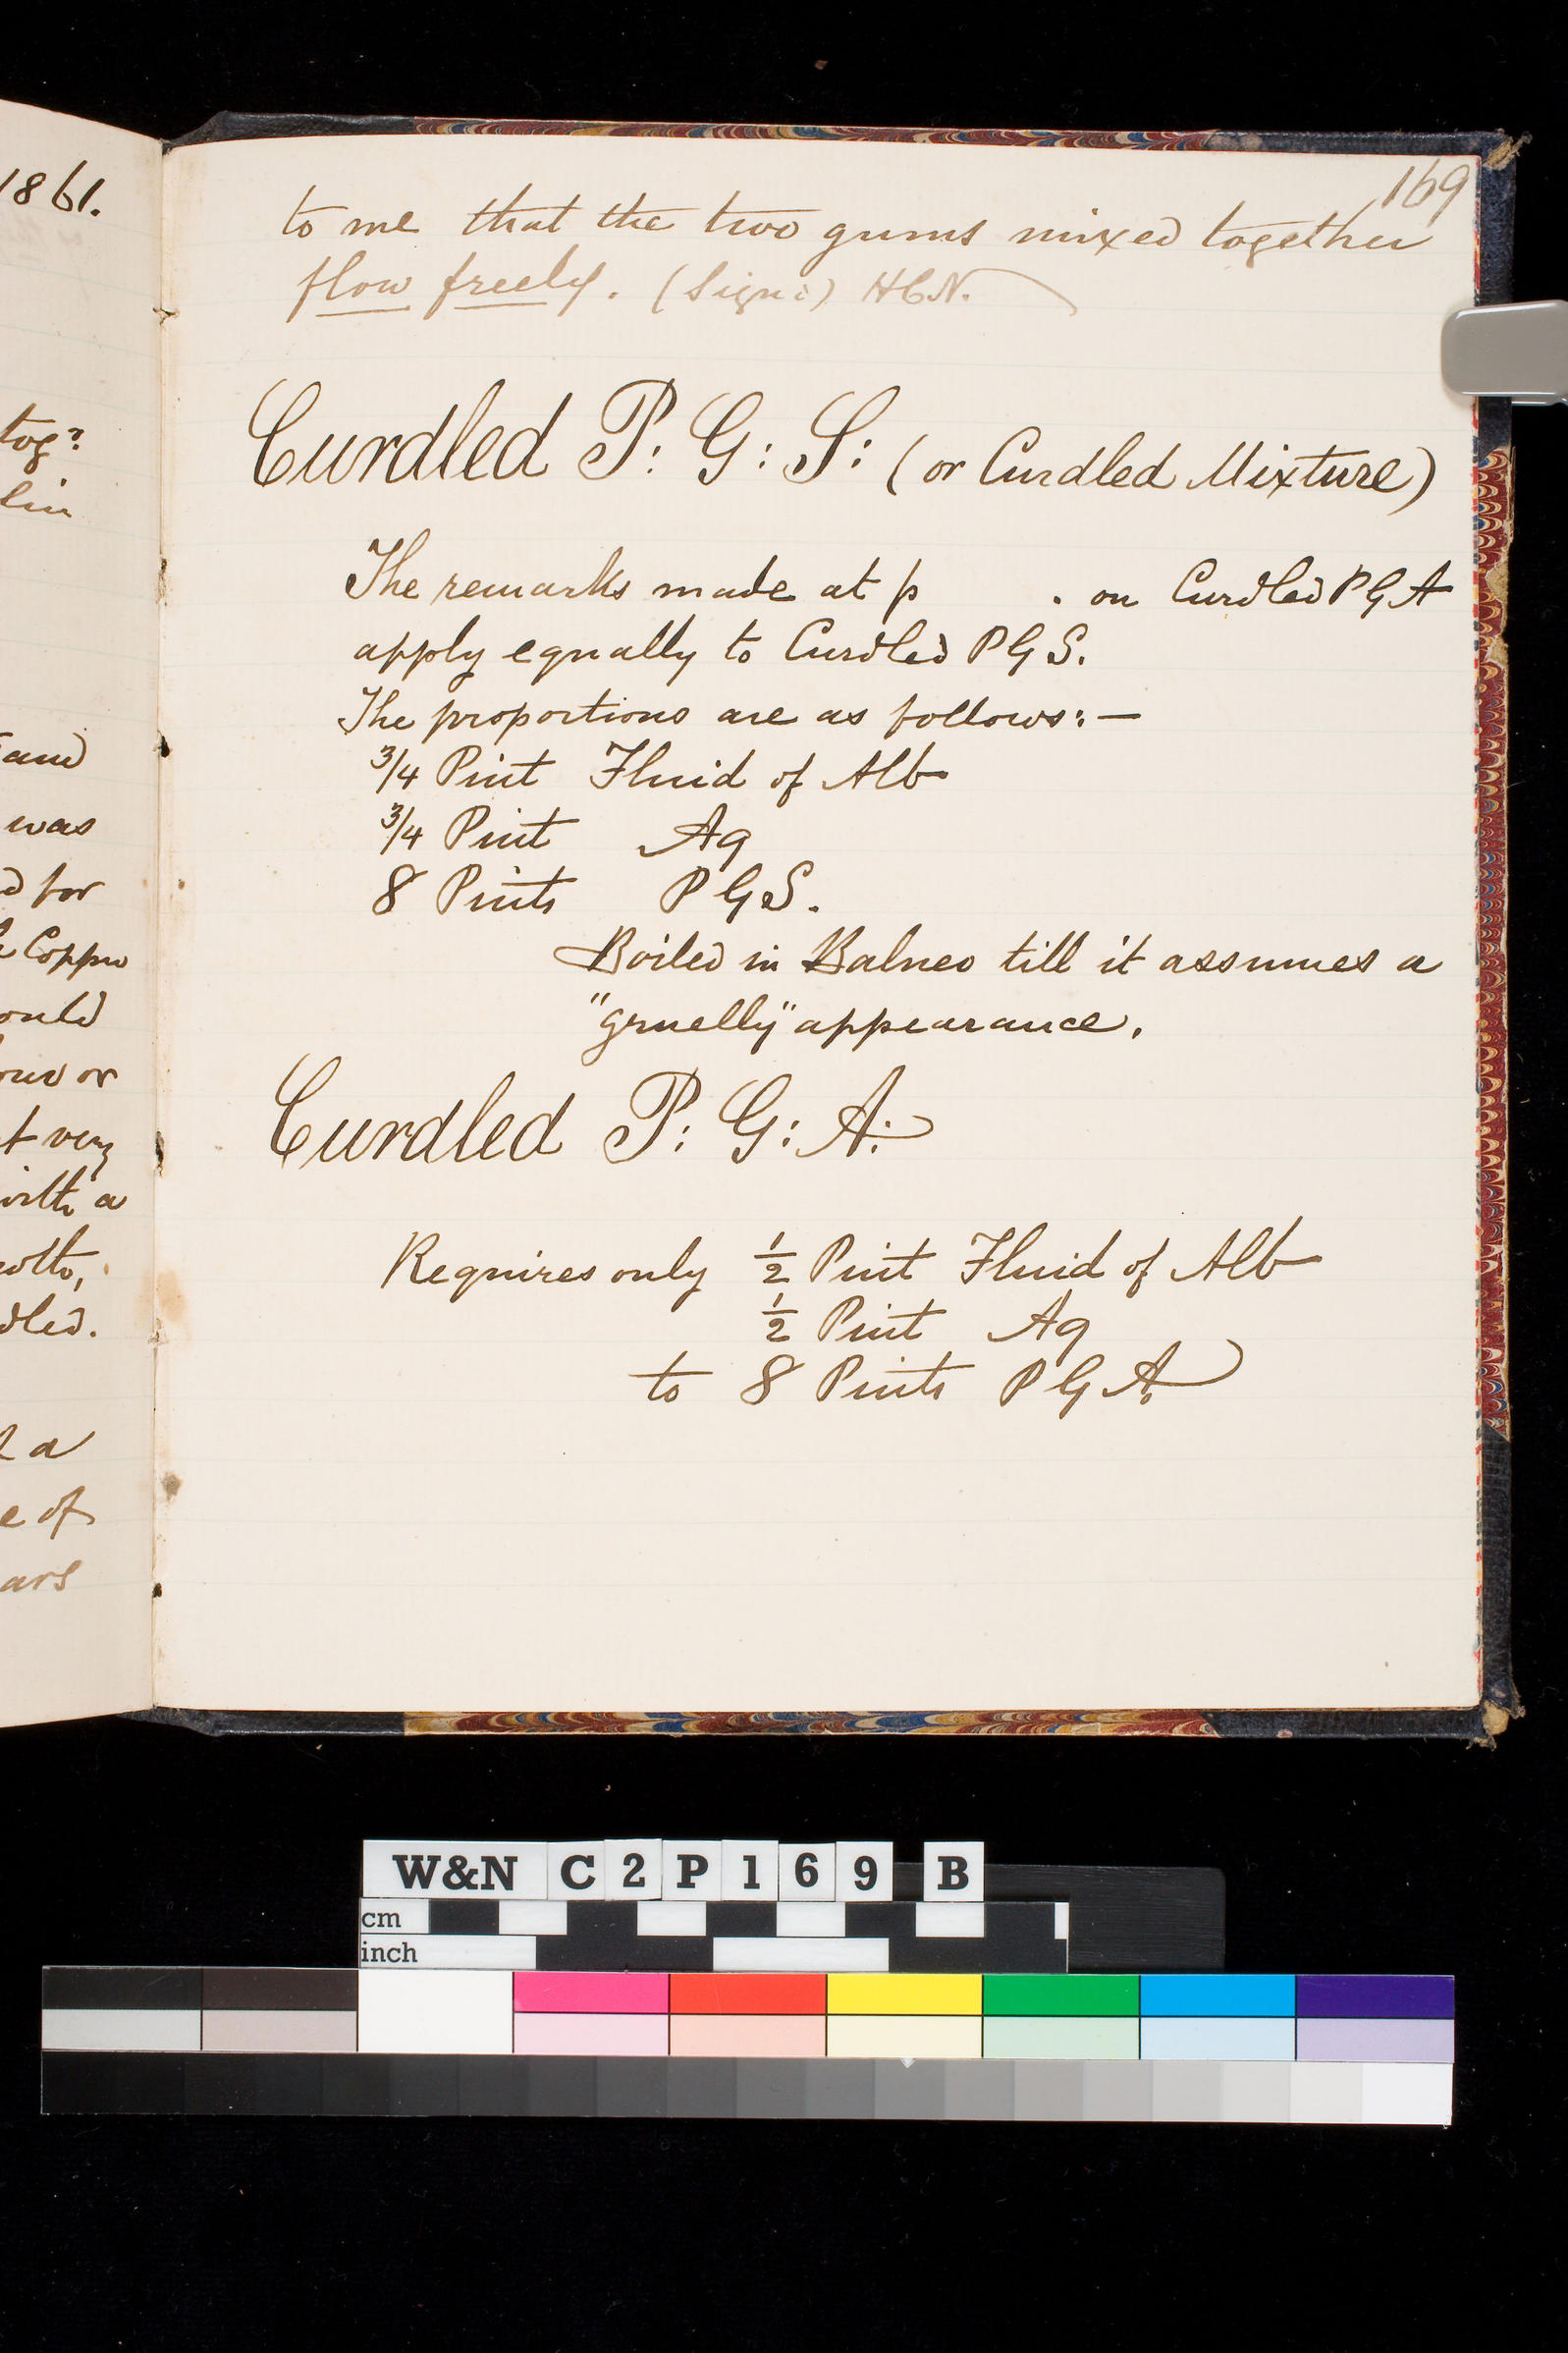 1861.
tog?
lin
and
was
d for
Copper
ould
our or
t very
with a
dled.
a
e of
ars
169
to me that the two gums mixed together
flow freely. (Signd) HCN.
Curdled P: G: S: (or Curdled Mixture)
The remarks made at p . on Curdled P G A
apply equally to Curdled P G S.
The proportions are as follows:—
3/4 Pint Fluid of Alb
3/4 Pint Aq
8 Pints P G S.
Boiled in Balneo till it assumes a
"gruelly" appearance.
Curdled P: G: A:
Requires only 1/2 Pint Fluid of Alb
1/2 Pint Aq
to 8 Pints P G A.
W&N C2P169 B
cm
inch